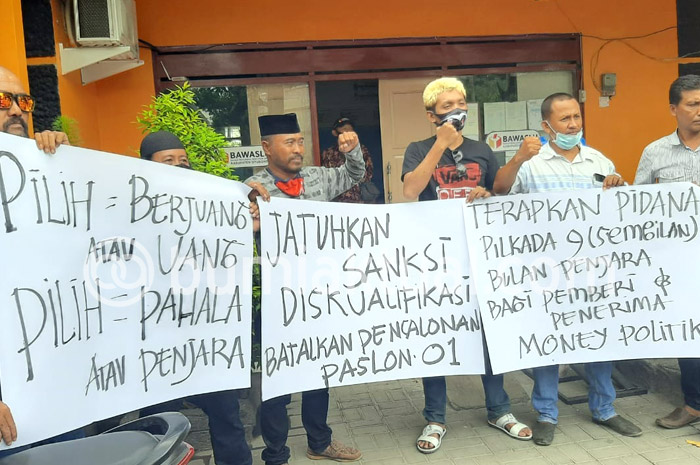 PILIH = BERJUANG
ATAU UANG
PILIH = PAHALA
ATAU PENJARA
JATUHKAN
SANKSI
DISKUALIFIKASI
BATALKAN PENCALONAN
PASLON. 01
TERAPKAN PIDANA
PILKADA 9 (SEMBILAN)
BULAN PENJARA
BAGI PEMBERI &
PENERIMA
MONEY POLITIK
BAWASLU
BAWASLU
VANS